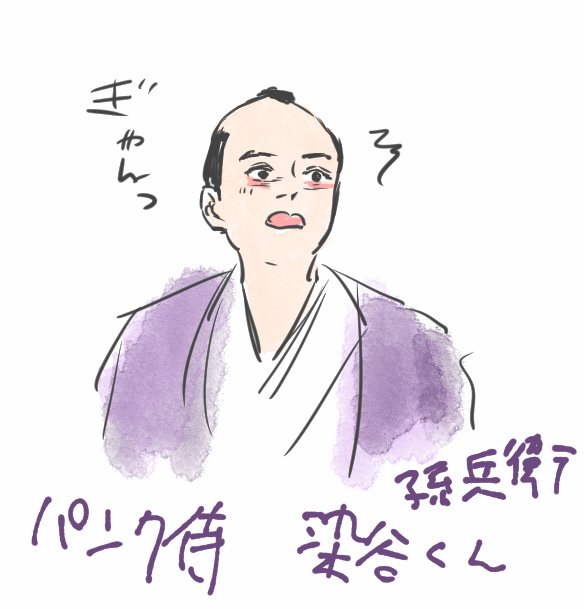 ぎゃんっ
孫兵衛
パンク侍 染谷くん